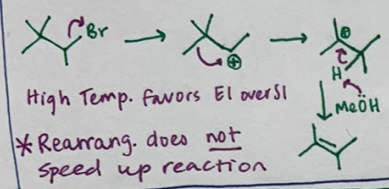 Br
⊕
⊕
H
High Temp. favors E1 over S1
MeÖH
*Rearrang. does not
speed up reaction